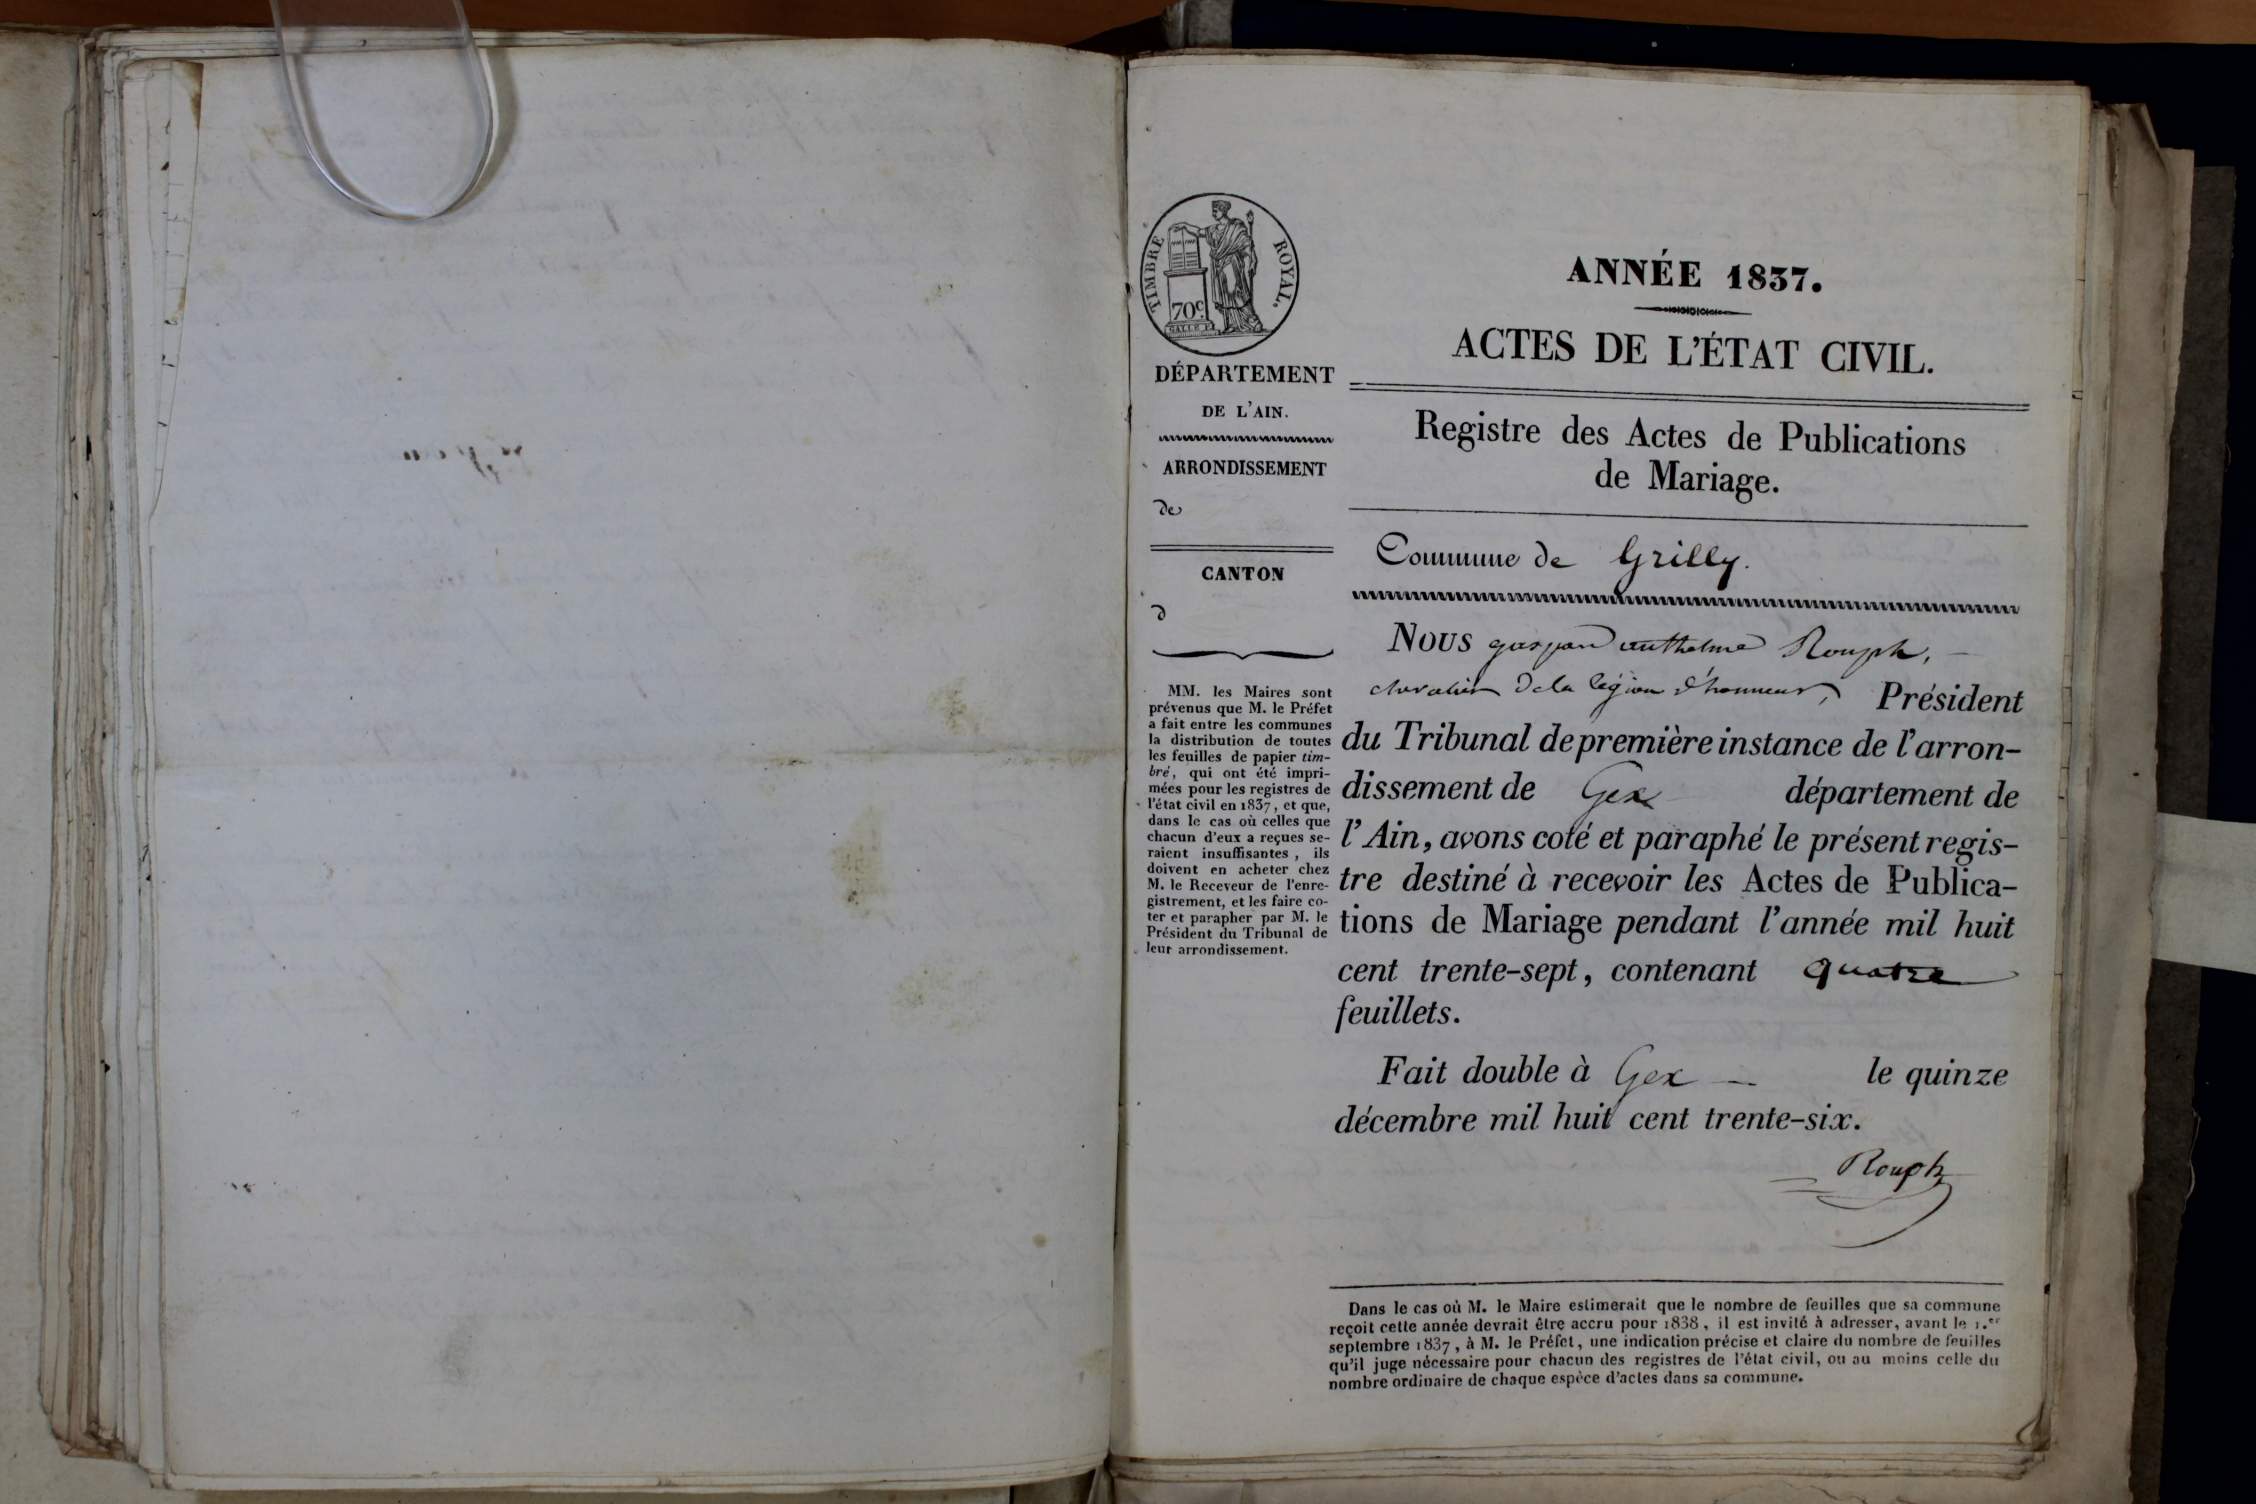 TIMBRE ROYAL.
70c.
GALLE F.
DÉPARTEMENT
DE L'AIN.
ARRONDISSEMENT
de
CANTON
d
MM. les Maires sont
prévenus que M. le Préfet
a fait entre les communes
la distribution de toutes
les feuilles de papier tim-
bré, qui ont été impri-
mées pour les registres de
l'état civil en 1837, et que,
dans le cas où celles que
chacun d'eux a reçues se-
raient insuffisantes, ils
doivent en acheter chez
M. le Receveur de l'enre-
gistrement, et les faire co-
ter et parapher par M. le
Président du Tribunal de
leur arrondissement.
ANNÉE 1837.
ACTES DE L'ÉTAT CIVIL.
Registre des Actes de Publications
de Mariage.
Commune de Grilly.
Nous gaspard anthelme Rouph,
chevalier de la légion d'honneur, Président
du Tribunal de première instance de l'arron-
dissement de Gex département de
l'Ain, avons coté et paraphé le présent regis-
tre destiné à recevoir les Actes de Publica-
tions de Mariage pendant l'année mil huit
cent trente-sept, contenant quatre
feuillets.
Fait double à Gex — le quinze
décembre mil huit cent trente-six.
Rouph
Dans le cas où M. le Maire estimerait que le nombre de feuilles que sa commune
reçoit cette année devrait être accru pour 1838, il est invité à adresser, avant le 1.er
septembre 1837, à M. le Préfet, une indication précise et claire du nombre de feuilles
qu'il juge nécessaire pour chacun des registres de l'état civil, ou au moins celle du
nombre ordinaire de chaque espèce d'actes dans sa commune.